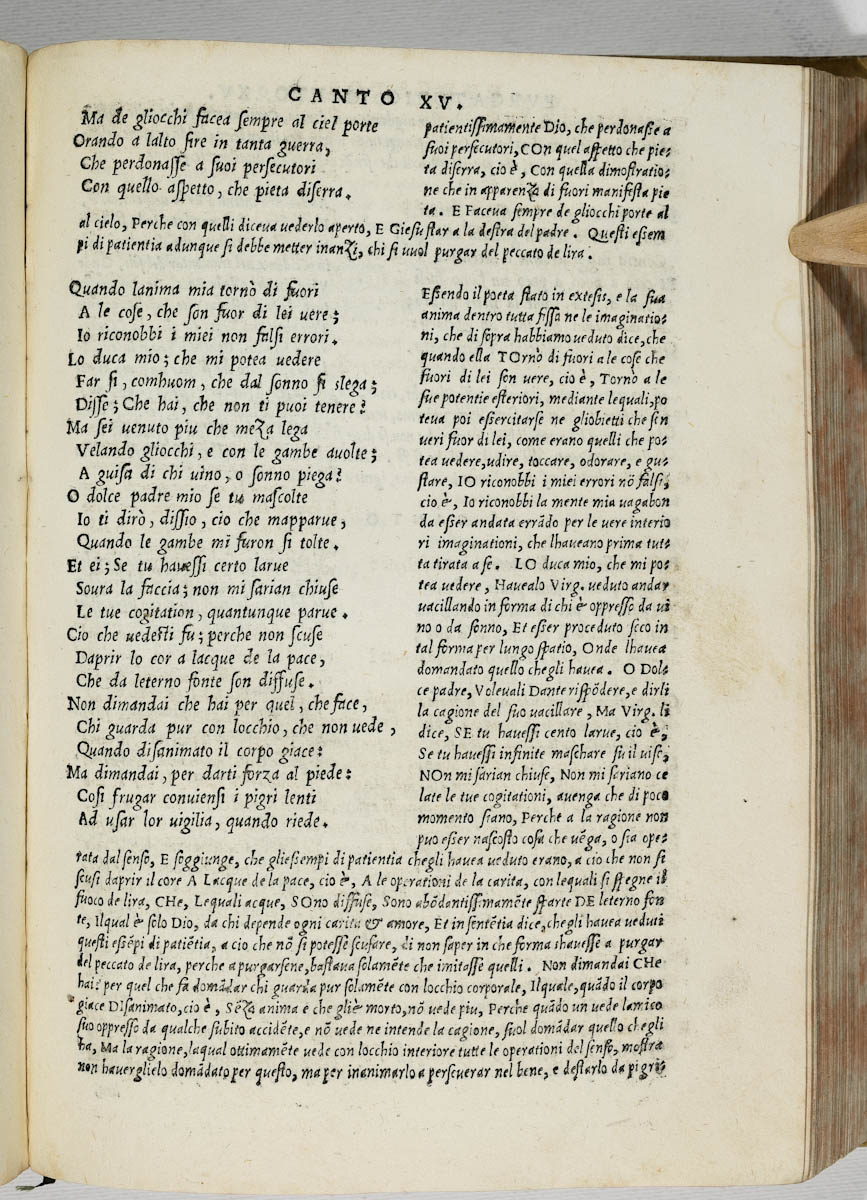 CANTO XV.
Ma de gliocchi facea ſempre al ciel porte
Orando a lalto ſire in tanta guerra,
Che perdonaſſe a ſuoi perſecutori
Con quello aſpetto, che pieta diſerra.
patientiſſimamente Dio, che perdonaſſe a
ſuoi perſecutori, COn quel aſpetto che pie⸗
ta diſerra, cio è, Con quella dimoſtratio⸗
ne che in apparenza di fuori manifeſta pie
ta. E Faceua ſempre de gliocchi porte al
al cielo, Perche con quelli diceua uederlo aperto, E Gieſu ſtar a la deſtra del padre. Queſti eſſem
pi di patientia adunque ſi debbe metter inanzi, chi ſi uuol purgar del peccato de lira.
Quando lanima mia tornò di fuori
A le coſe, che ſon fuor di lei uere;
Io riconobbi i miei non falſi errori.
Lo duca mio; che mi potea uedere
Far ſi, comhuom, che dal ſonno ſi slega;
Diſſe; Che hai, che non ti puoi tenere?
Ma ſei uenuto piu che meza lega
Velando gliocchi, e con le gambe auolte;
A guiſa di chi uino, o ſonno piega?
O dolce padre mio ſe tu maſcolte
Io ti dirò, diſſio, cio che mapparue,
Quando le gambe mi furon ſi tolte.
Et ei; Se tu haueſſi certo larue
Soura la faccia; non mi ſarian chiuſe
Le tue cogitation, quantunque parue.
Cio che uedeſti fu; perche non ſcuſe
Daprir lo cor a lacque de la pace,
Che da leterno fonte ſon diffuſe.
Non dimandai che hai per quel, che face,
Chi guarda pur con locchio, che non uede,
Quando diſanimato il corpo giace:
Ma dimandai, per darti forza al piede:
Coſi frugar conuienſi i pigri lenti
Ad uſar lor uigilia, quando riede.
Eſſendo il poeta ſtato in extesis, e la ſua
anima dentro tutta fiſſa ne le imaginatio⸗
ni, che di ſopra habbiamo ueduto dice, che
quando ella TOrnò di fuori a le coſe che
fuori di lei ſon uere, cio è, Tornò a le
ſue potentie eſteriori, mediante lequali, po
teua poi eſſercitarſe ne gliobietti che ſon
ueri fuor di lei, come erano quelli che po⸗
tea uedere, udire, toccare, odorare, e gu⸗
ſtare, IO riconobbi i miei errori nõ falſi,
cio è, Io riconobbi la mente mia uagabon
da eſſer andata errãdo per le uere interio
ri imaginationi, che lhaueano prima tut⸗
ta tirata a ſe. LO duca mio, che mi po⸗
tea uedere, Hauealo Virg. ueduto andar
uacillando in forma di chi è oppreſſo da ui
no o da ſonno, Et eſſer proceduto ſeco in
tal forma per lungo ſpatio, Onde lhauea
domandato quello chegli hauea. O Dol⸗
ce padre, Voleuali Dante riſpõdere, e dirli
la cagione del ſuo uacillare, Ma Virg. li
dice, SE tu haueſſi cento larue, cio è,
Se tu haueſſi infinite maſchare ſu il uiſo,
NOn mi ſarian chiuſe, Non mi ſariano ce
late le tue cogitationi, auenga che di poco
momento ſiano, Perche a la ragione non
puo eſſer naſcoſto coſa che uẽga, o ſia ope⸗
rata dal ſenſo, E ſoggiunge, che glieſſempi di patientia chegli hauea ueduto erano, a cio che non ſi
ſcuſi daprir il core A Lacque de la pace, cio è, A le operationi de la carita, con lequali ſi ſpegne il
fuoco de lira, CHe, Lequali acque, SOno diffuſe, Sono abõdantiſſimamẽte ſparte DE leterno fon
te, ilqual è ſolo Dio, da chi depende ogni carita & amore, Et in ſentẽtia dice, chegli hauea ueduti
queſti eſſẽpi di patiẽtia, a cio che nõ ſi poteſſe ſcuſare, di non ſaper in che forma shaueſſe a purgar
del peccato de lira, perche a purgarſene, baſtaua ſolamẽte che imitaſſe quelli. Non dimandai CHe
hai: per quel che fa domãdar chi guarda pur ſolamẽte con locchio corporale, Ilquale, quãdo il corpo
giace DIſanimato, cio è, Sẽza anima e che gliè morto, nõ uede piu, Perche quãdo un uede lamico
ſuo oppreſſo da qualche ſubito accidẽte, e nõ uede ne intende la cagione, ſuol domãdar quello chegli
ha, Ma la ragione, laqual ottimamẽte uede con locchio interiore tutte le operationi del ſenſo, moſtra
non hauerglielo domãdato per queſto, ma per inanimarlo a perſeuerar nel bene, e deſtarlo da pigri⸗